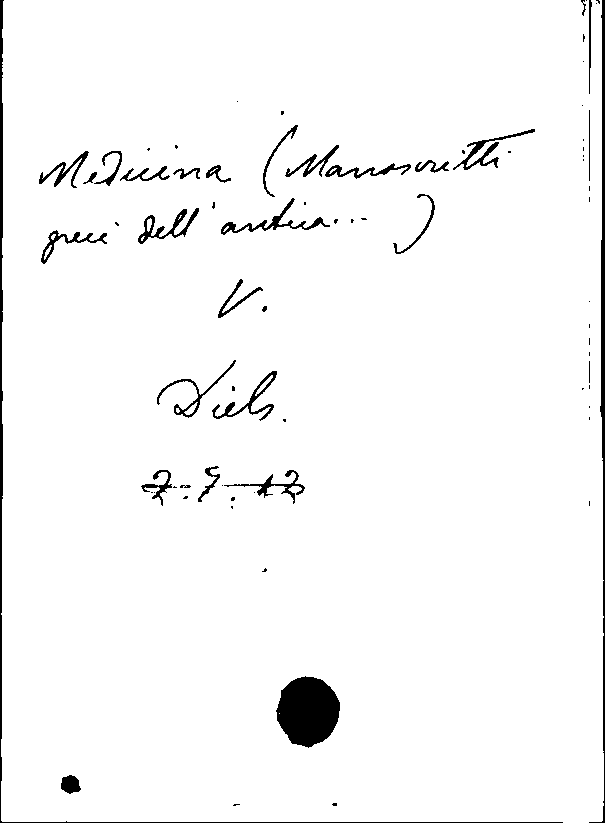 Medicina (Manoscritti
greci dell'antica...)
V.
Diels.